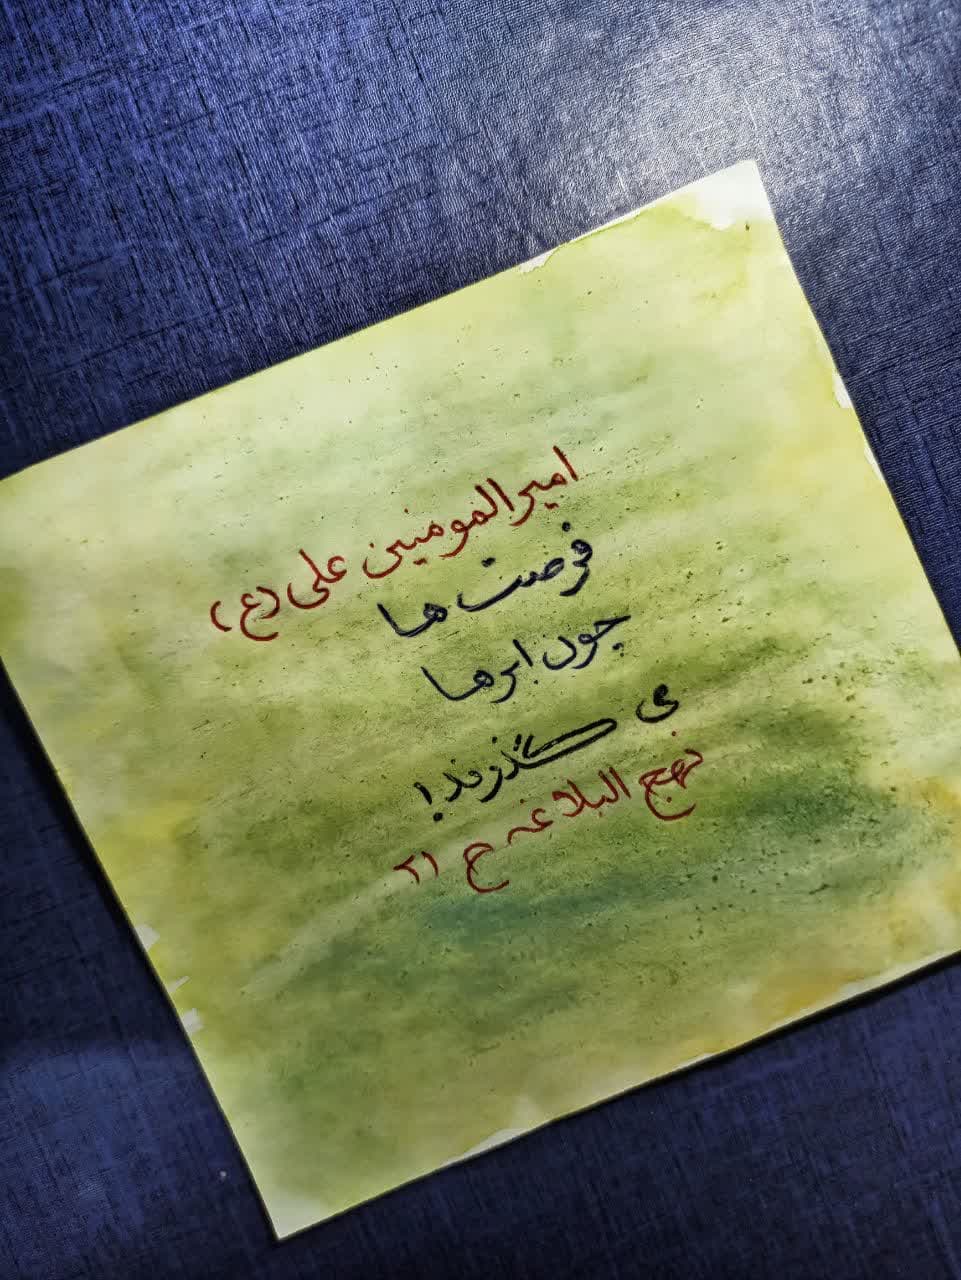 امیرالمومنین علی (ع)
فرصت ها
چون ابرها
می گذرند!
نهج البلاغه ح ۲۱